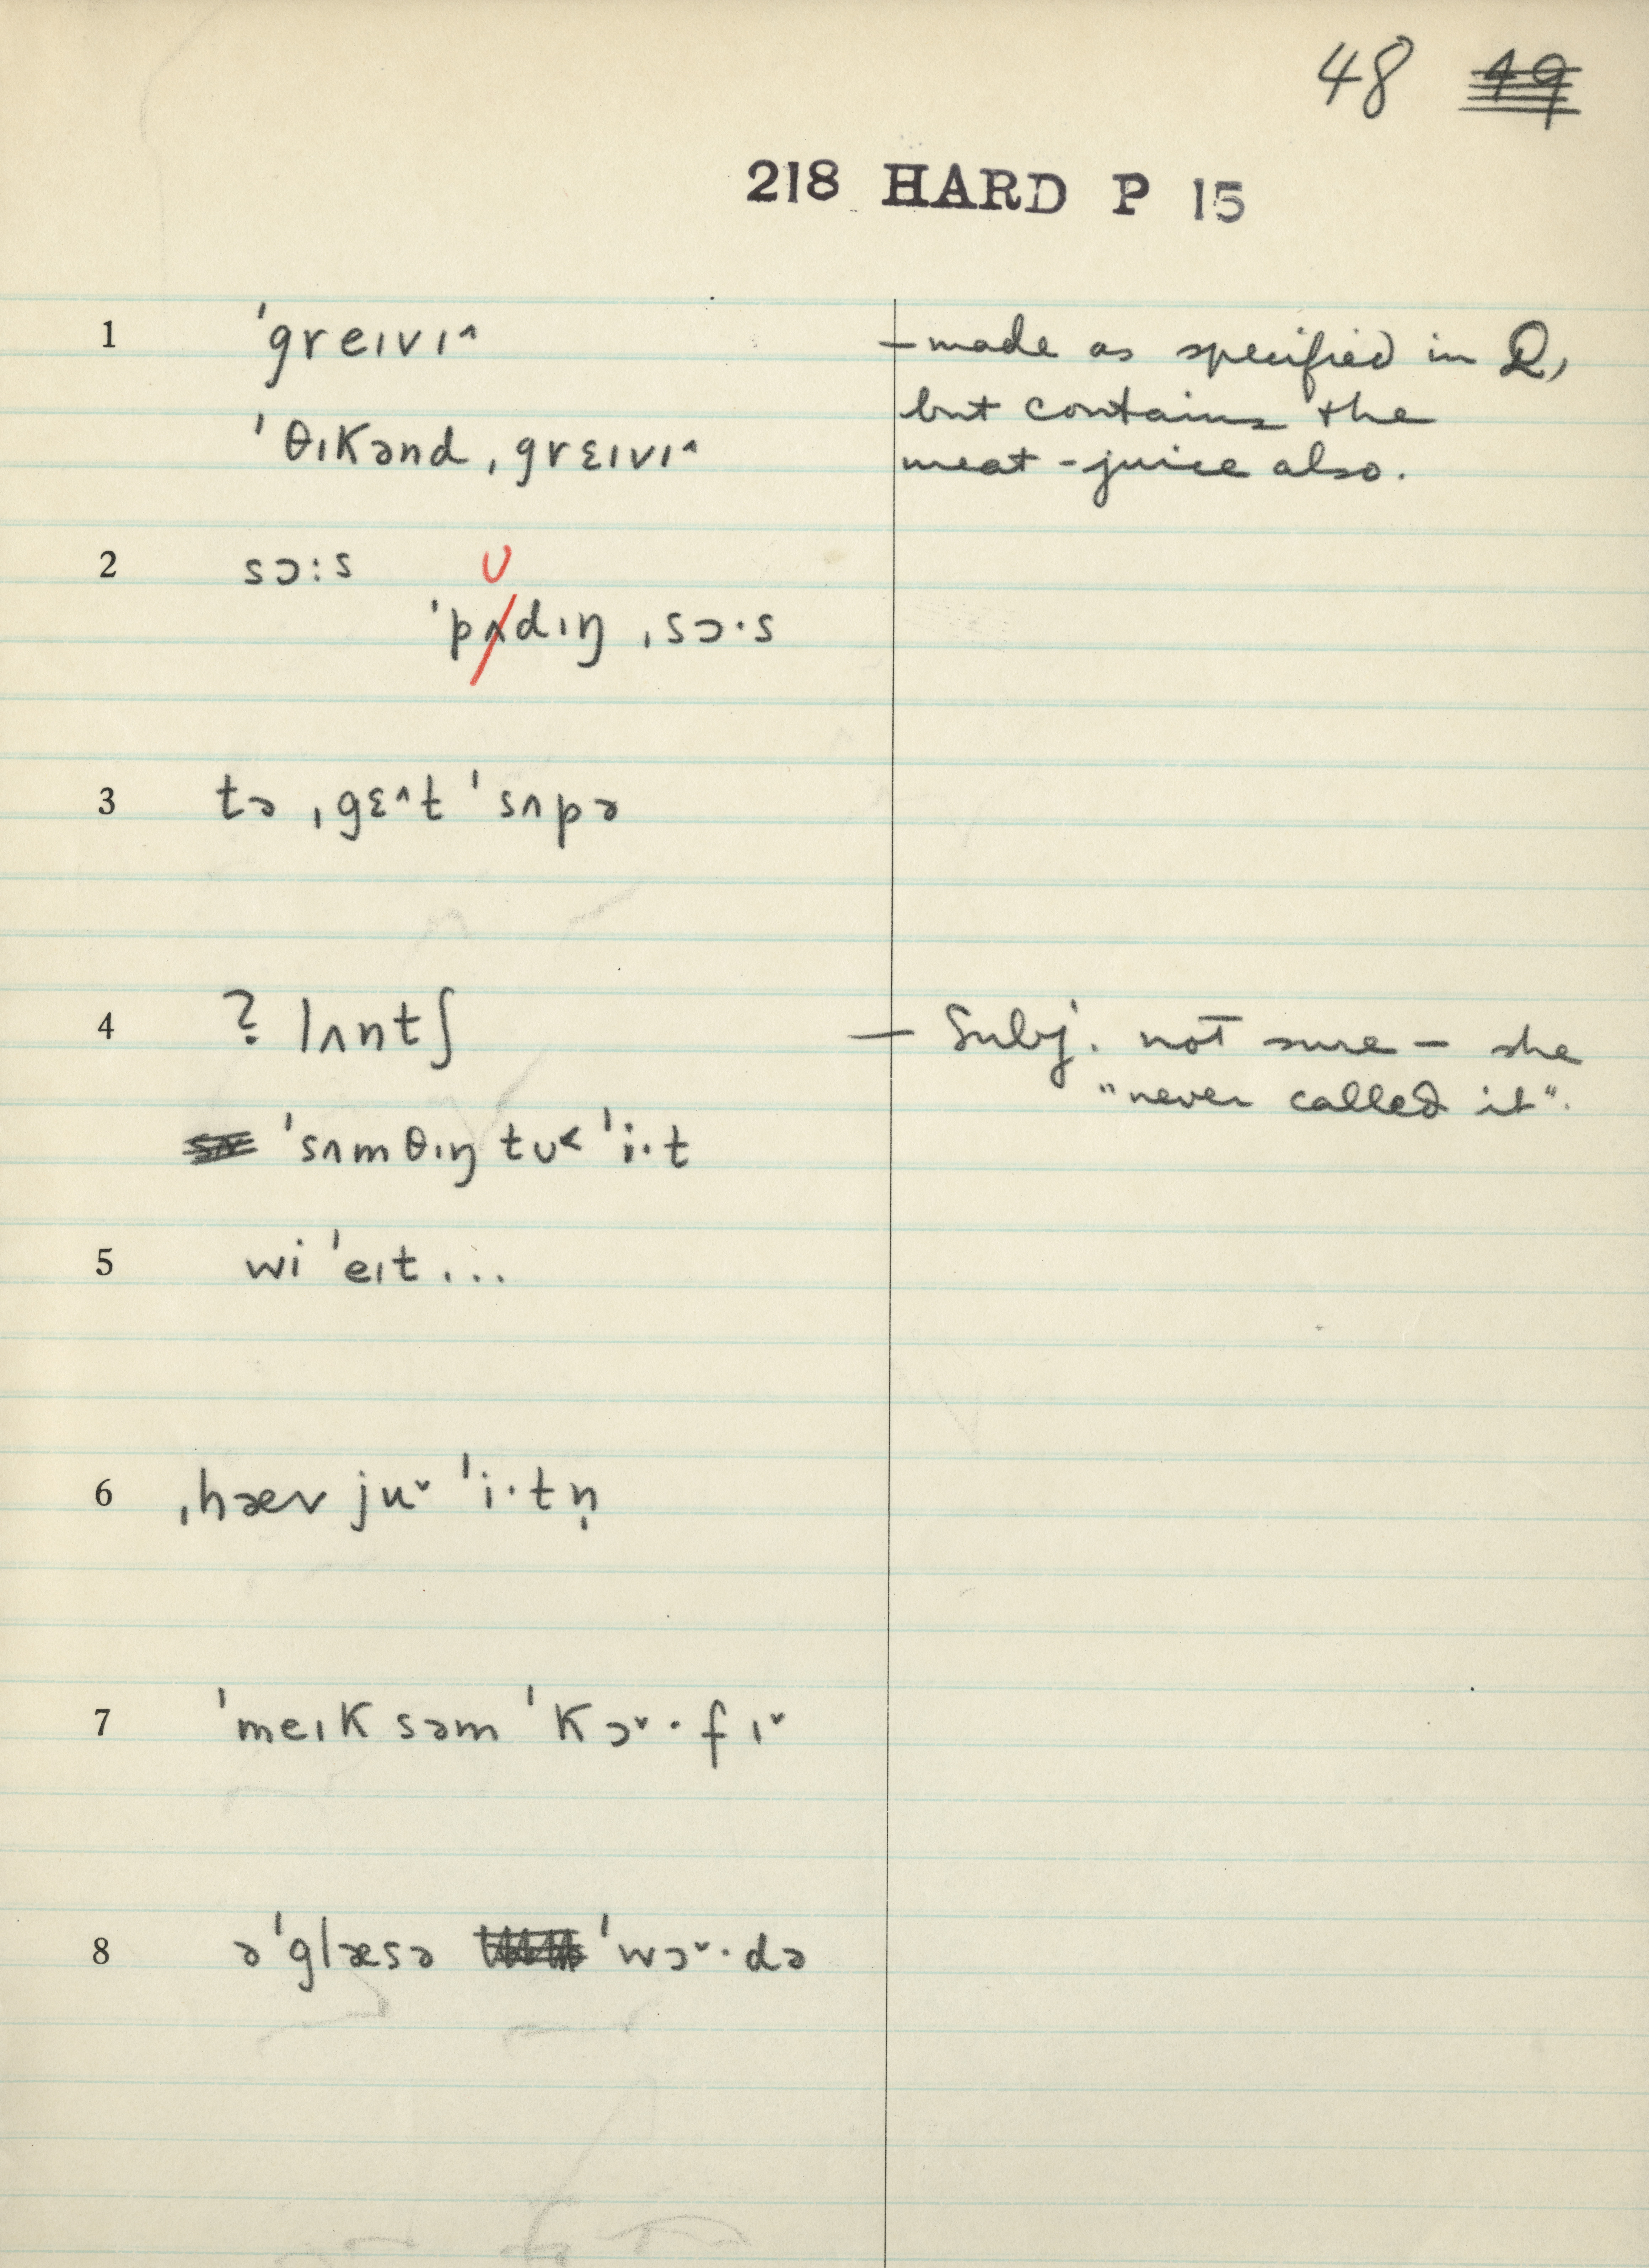 48 49
218 HARD P 15
1 ˈgreɪvɪ^ — made as specified in Q,
but contains the
ˈθɪkənd ˌgrɛɪvɪ^ meat-juice also.
2 sɔ:s ʊ
ˈpʌdɪŋ ˌsɔ·s
3 tə ˌgɛ^t ˈsʌpə
4 ? lʌntʃ — Subj. not sure — she
"never called it".
ˈsʌmθɪŋ tʊ< ˈi·t
5 wi ˈeɪt ...
6 ˌhæv ju˅ ˈi·tn̩
7 ˈmeɪk səm ˈkɔ˅·fɪ˅
8 ə ˈglæsə ˈwɔ˅·də